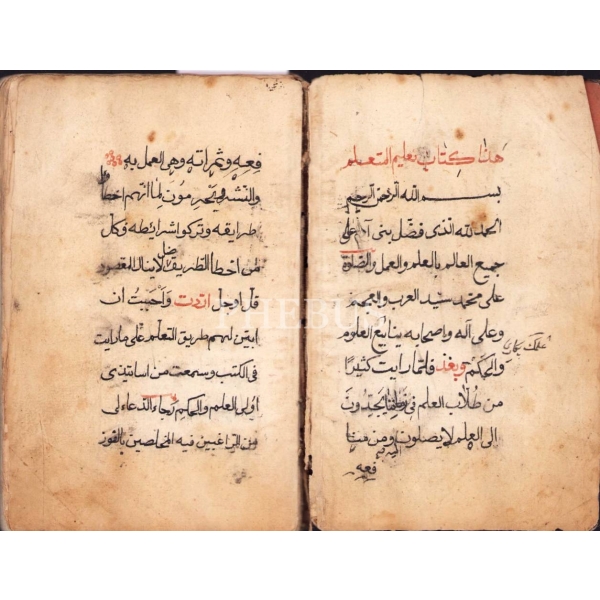 هذا كتاب تعليم المتعلم
بسم الله الرحمن الرحيم
الحمد لله الذى فضل بنى آدم على
جميع العالم بالعلم والعمل والصلوة
على محمد سيد العرب والعجم
وعلى آله واصحابه ينابيع العلوم
والحكم وبعد فلما رايت كثيرًا
من طلاب العلم فى زماننا يجدون
الى العلم لا يصلون ومن منا
فعه
فعه وثمراته وهى العمل به
والنشر يحرمون لما انهم اخطأ
طرايقه وتركوا شرائطه وكل
من اخطأ الطريق ضل لا ينال المقصود
قل او جل اردت واحببت ان
ابين لهم طريق التعلم على ما رايت
فى الكتب وسمعت من اساتيذى
اولى العلم والحكم رجاء الدعاء لى
من الراغبين فيه المخلصين بالفوز
PHEBUS